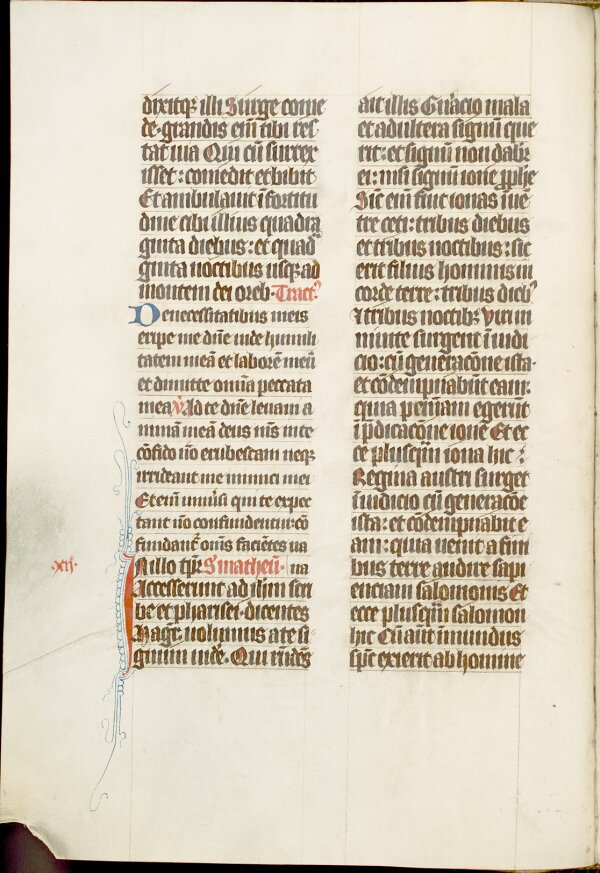 dixitqȝ illi Surge come
de·grandis em̄ tibi res
tat uia Qui cū surrex
isset: comedit et bibit
Et ambulauit ī fortitu
dine cibi illius quadra
ginta diebus: et quad᷑
ginta noctibus usqȝ ad
montem dei oreb· Tract᷒
De necessitatibus meis
eripe me dn̄e uide humili
tatem meā et laborē meū
et dimitte omīa peccata
mea v̷ Ad te dn̄e leuaui a
nimā meā deus ms̄ in te
cōfido nō erubescam neqȝ
irrideant me inimici mei
Eteni᷒ uniūsi qui te expec
tant nō confundentur: cō
fundant᷑ om̄s faciētes ua
na S᷒ matheū·
In illo tp̄r
·xij·
Accesserunt ad ih̄m scri
be et pharisei· dicentes
Magr̄· uolumus a te si
gnum uide· Qui rn̄dēs
ait illis Gn̄acio mala
et adultera signū que
rit: et signū non dabit᷑
ei: nisi signū ione p̄phe
Sic᷒ em̄ fuit ionas in uē
tre ceti: tribus diebus
et tribus noctibus: sic
erit filius hominis in
corde terre: tribus dieb᷒
⁊ tribus noctibȝ Viri ni
niuite surgent ī iudi
cio: cū generacōne ista·
et cōdempnabūt eam:
quia penitēnciam egerūt
ī p̄dicacōne ione Et ec
ce plusqͣ̄ iona hic:
Regina austri surget
ī iudicio cū generacōe
ista: et cōdempnabit e
am: quia uenit a fini
bus terre audire sapi
enciam salomonis Et
ecce plusqͣ̄ salomon
hic Cū aut̄ inmundus
sp̄c exierit ab homine